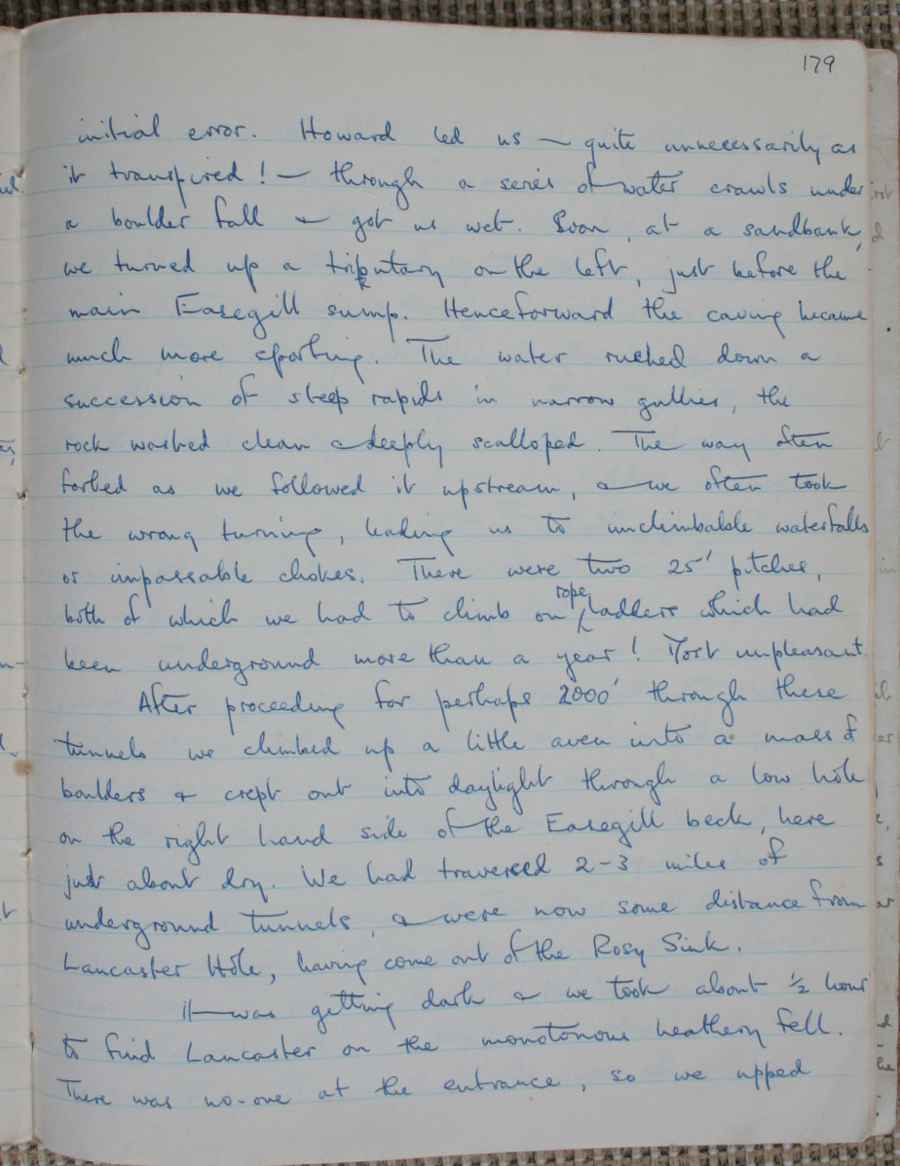 179
initial error. Howard led us - quite unnecessarily as
it transpired! - through a series of water crawls under
a boulder fall & got us wet. Soon, at a sandbank,
we turned up a tributary on the left, just before the
main Easegill sump. Henceforward the caving became
much more sporting. The water rushed down a
succession of steep rapids in narrow gullies, the
rock washed clean & deeply scalloped. The way often
forked as we followed it upstream, & we often took
the wrong turning, leading us to unclimbable waterfalls
or impassable chokes. There were two 25' pitches,
both of which we had to climb on rope ladders which had
been underground more than a year! Most unpleasant.
After proceeding for perhaps 2000' through these
tunnels we climbed up a little aven into a mass of
boulders & crept out into daylight through a low hole
on the right hand side of the Easegill beck, here
just about dry. We had traversed 2-3 miles of
underground tunnels, & were now some distance from
Lancaster Hole, having come out of the Rosy Sink.
It was getting dark & we took about ½ hour
to find Lancaster on the monotonous heathery fell.
There was no-one at the entrance, so we upped